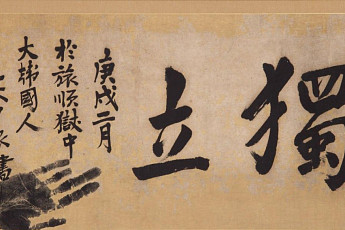 獨立
庚戌二月
於旅順獄中
大韓國人
書